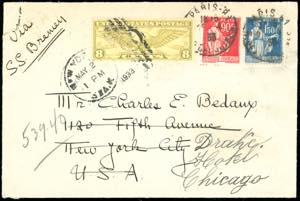 Via
S.S. Bremen
UNITED STATES POSTAGE
8
90c
1F50
PARIS
NEW YORK
MAY 2
1 PM
1933
Mr Charles E. Bedaux
1180 Fifth Avenue
New York City
U.S.A
Drake
Hotel
Chicago